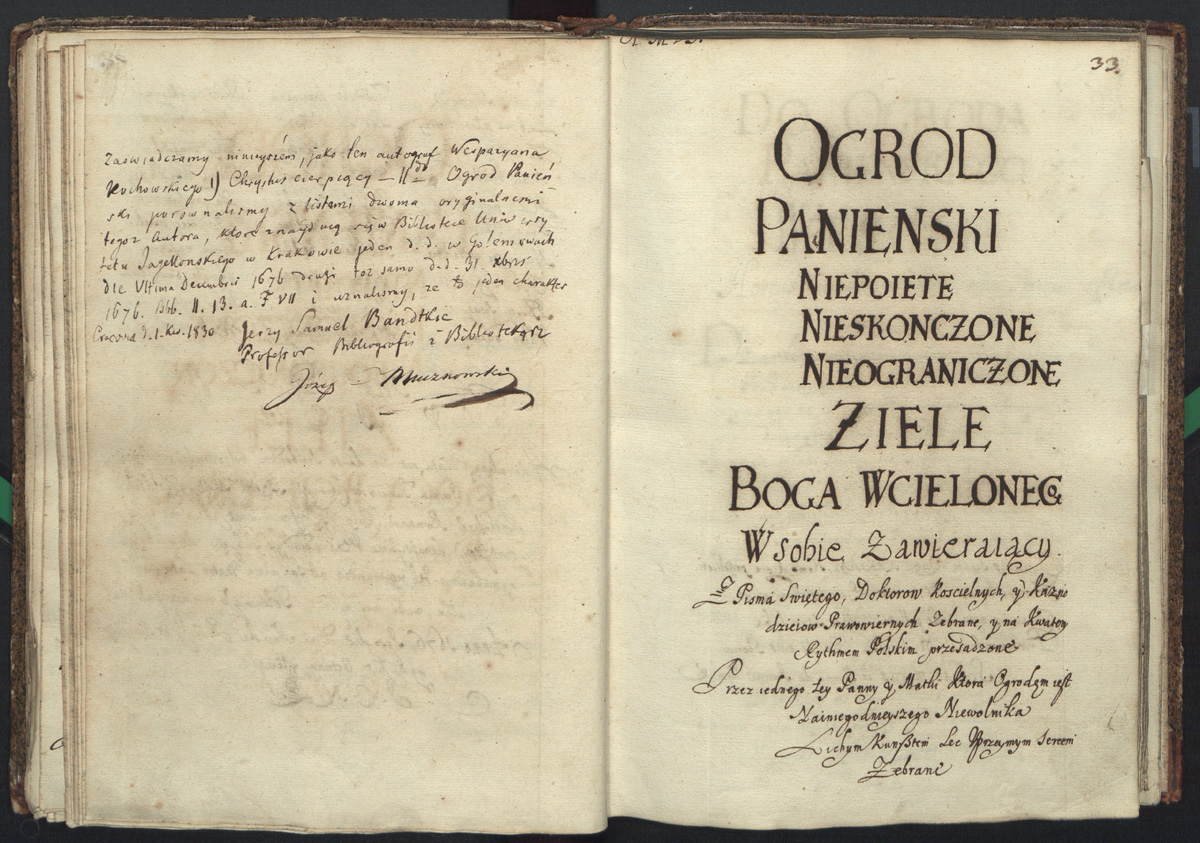 Zaswiadczamy ninieyszém, jako ten autograf Wespazyana
Kochowskiego 1) Chrystus cierpiący — II Ogrod Panień
ski porównalismy z listami dwoma oryginalnemi
tegoż Autora, które znayduią się w Bibliotece Uniwersy
tetu Jagellonskiego w Krakowie jeden d. d. w Goleniowach
die Ultima Decembris 1676 drugi toż samo d. d. 31. xbris
1676. Bbb. II. 13. a. F VII i uznalismy, że to jeden charakter
Cracovia d. 1. Kw. 1830 Jerzy Samuel Bandtkie
Professor Bibliografii i Bibliotekarz
Józef Muczkowski
33.
OGROD
PANIENSKI
NIEPOIETE
NIESKONCZONE
NIEOGRANICZONE
ZIELE
BOGA WCIELONEGO
W sobie Zawieraiący
Z Pisma Swiętego, Doktorow Koscielnych, y Kazno
dzieiow Prawowiernych Zebrane, y na Kwatery
Rythmem Polskim przesadzone
Przez iednego tey Panny y Matki Ktora Ogrodem iest
Nainiegodnieyszego Niewolnika
Lichym Kunsztem Lec Uprzeymym Sercem
Zebrane